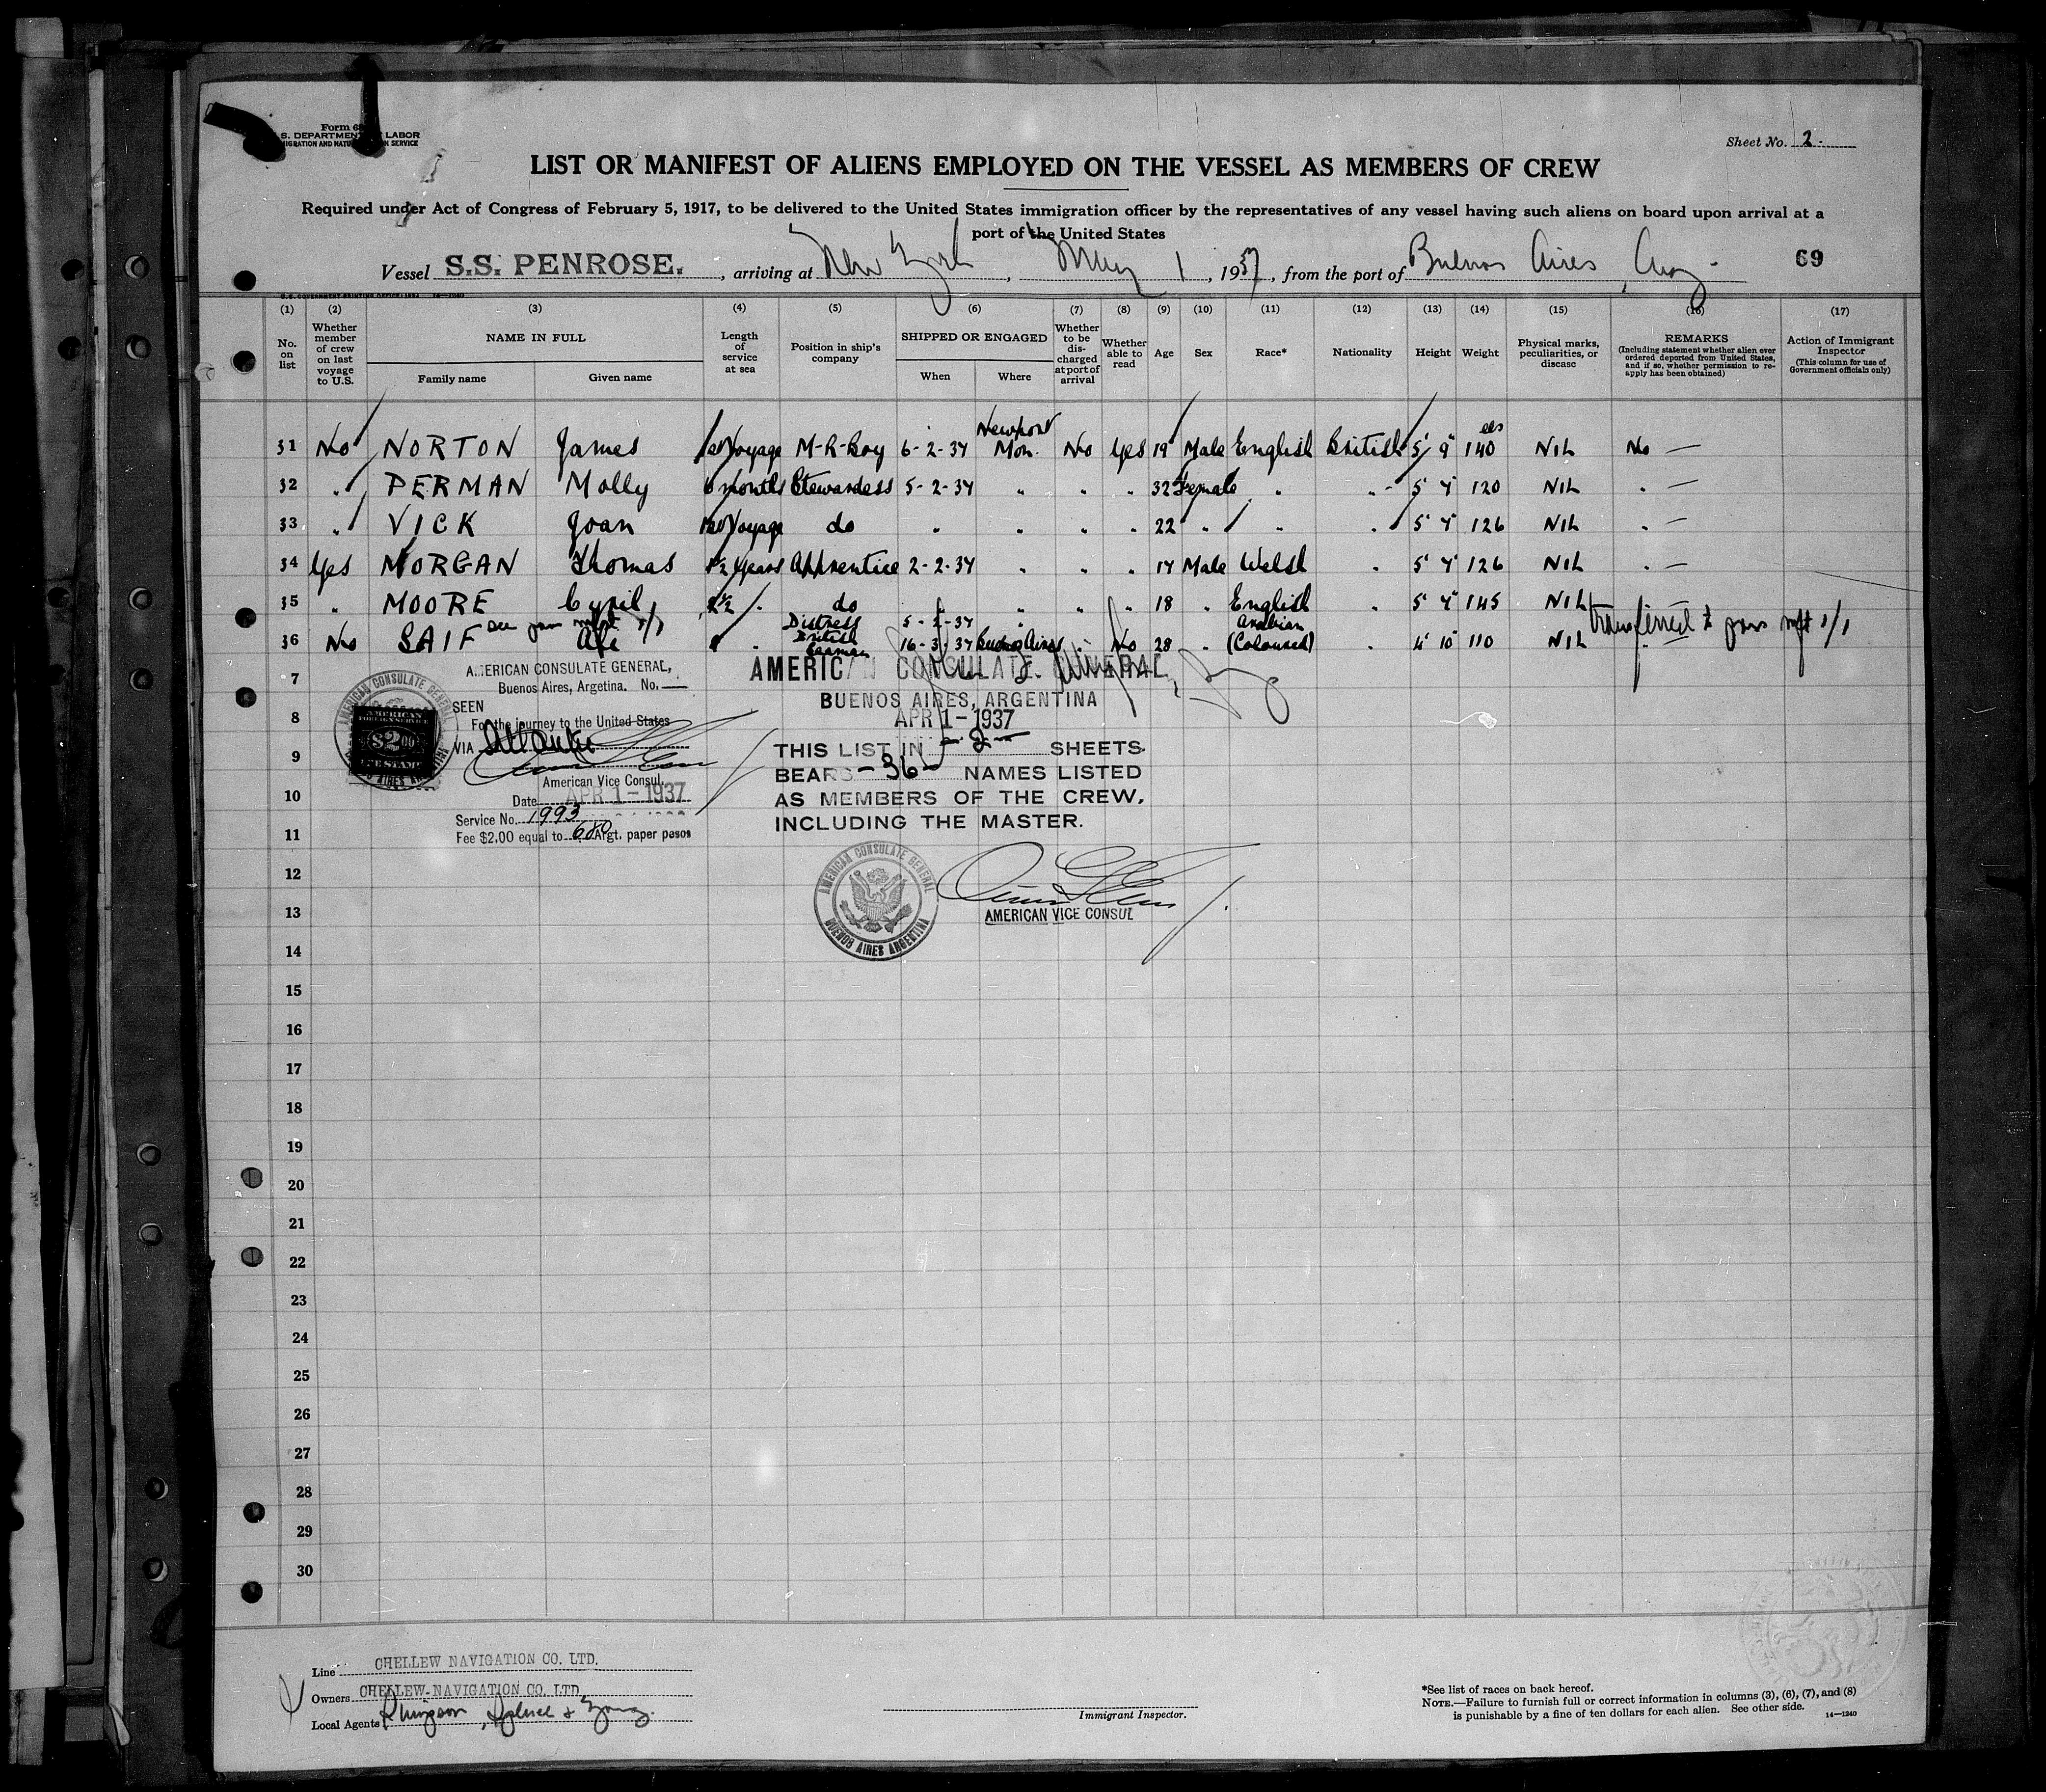 Form 68
U. S. DEPARTMENT OF LABOR
IMMIGRATION AND NATURALIZATION SERVICE
Sheet No. 2.
LIST OR MANIFEST OF ALIENS EMPLOYED ON THE VESSEL AS MEMBERS OF CREW
Required under Act of Congress of February 5, 1917, to be delivered to the United States immigration officer by the representatives of any vessel having such aliens on board upon arrival at a
port of the United States
Vessel S.S. PENROSE., arriving at New York, May 1, 1937, from the port of Buenos Aires, Arg. 69
(1) (2) (3) (4) (5) (6) (7) (8) (9) (10) (11) (12) (13) (14) (15) (16) (17)
No. on list
Whether member of crew on last voyage to U.S.
NAME IN FULL
Family name
Given name
Length of service at sea
Position in ship's company
SHIPPED OR ENGAGED
When
Where
Whether to be discharged at port of arrival
Whether able to read
Age
Sex
Race*
Nationality
Height
Weight
Physical marks, peculiarities, or disease
REMARKS
(Including statement whether alien ever ordered deported from United States, and if so, whether permission to reapply has been obtained)
Action of Immigrant Inspector
(This column for use of Government officials only)
31 No NORTON James 1st Voyage M-R-Boy 6-2-37 Newport Mon. No Yes 19 Male English British 5' 9" 140 NIL No —
32 " PERMAN Molly 6 months Stewardess 5-2-37 " " " 32 Female " " 5' 4" 120 NIL " —
33 " VICK Joan 1st Voyage do " " " " 22 " " " 5' 4" 126 NIL " —
34 Yes MORGAN Thomas 1½ Years Apprentice 2-2-37 " " " 17 Male Welsh " 5' 4" 126 NIL " —
35 " MOORE Cyril 2½ " do 5-2-37 " " " 18 " English " 5' 4" 145 NIL
36 No SAIF Ali " Distress British Seaman 16-3-37 Buenos Aires " No 28 " Arabian (Coloured) " 4' 10" 110 NIL "
see pass mft 1/1
transferred to pass mft 1/1
AMERICAN CONSULATE GENERAL,
Buenos Aires, Argetina. No. —
SEEN
For the journey to the United States
VIA Atlantic
American Vice Consul.
Date APR 1-1937
Service No. 1993
Fee $2.00 equal to 6.80 Argt. paper pesos
AMERICAN CONSULATE GENERAL
BUENOS AIRES ARGENTINA
AMERICAN
FOREIGN SERVICE
$2.00
FEE STAMP
AMERICAN CONSULATE GENERAL
BUENOS AIRES, ARGENTINA
APR 1-1937
THIS LIST IN -2- SHEETS
BEARS -36- NAMES LISTED
AS MEMBERS OF THE CREW,
INCLUDING THE MASTER.
AMERICAN CONSULATE GENERAL
BUENOS AIRES ARGENTINA
AMERICAN VICE CONSUL
7
8
9
10
11
12
13
14
15
16
17
18
19
20
21
22
23
24
25
26
27
28
29
30
Line CHELLEW NAVIGATION CO. LTD.
Owners CHELLEW NAVIGATION CO. LTD
Local Agents
Immigrant Inspector.
*See list of races on back hereof.
NOTE.—Failure to furnish full or correct information in columns (3), (6), (7), and (8)
is punishable by a fine of ten dollars for each alien. See other side. 14—1240